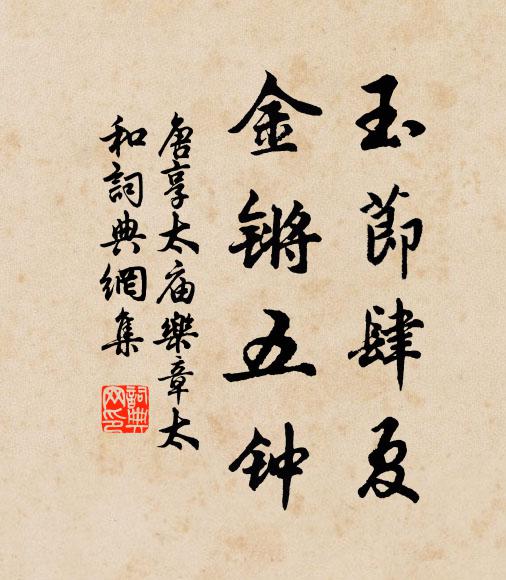 玉節肆夏
金锵五钟
唐享太庙樂章太
和詞典網集
詞典
网印